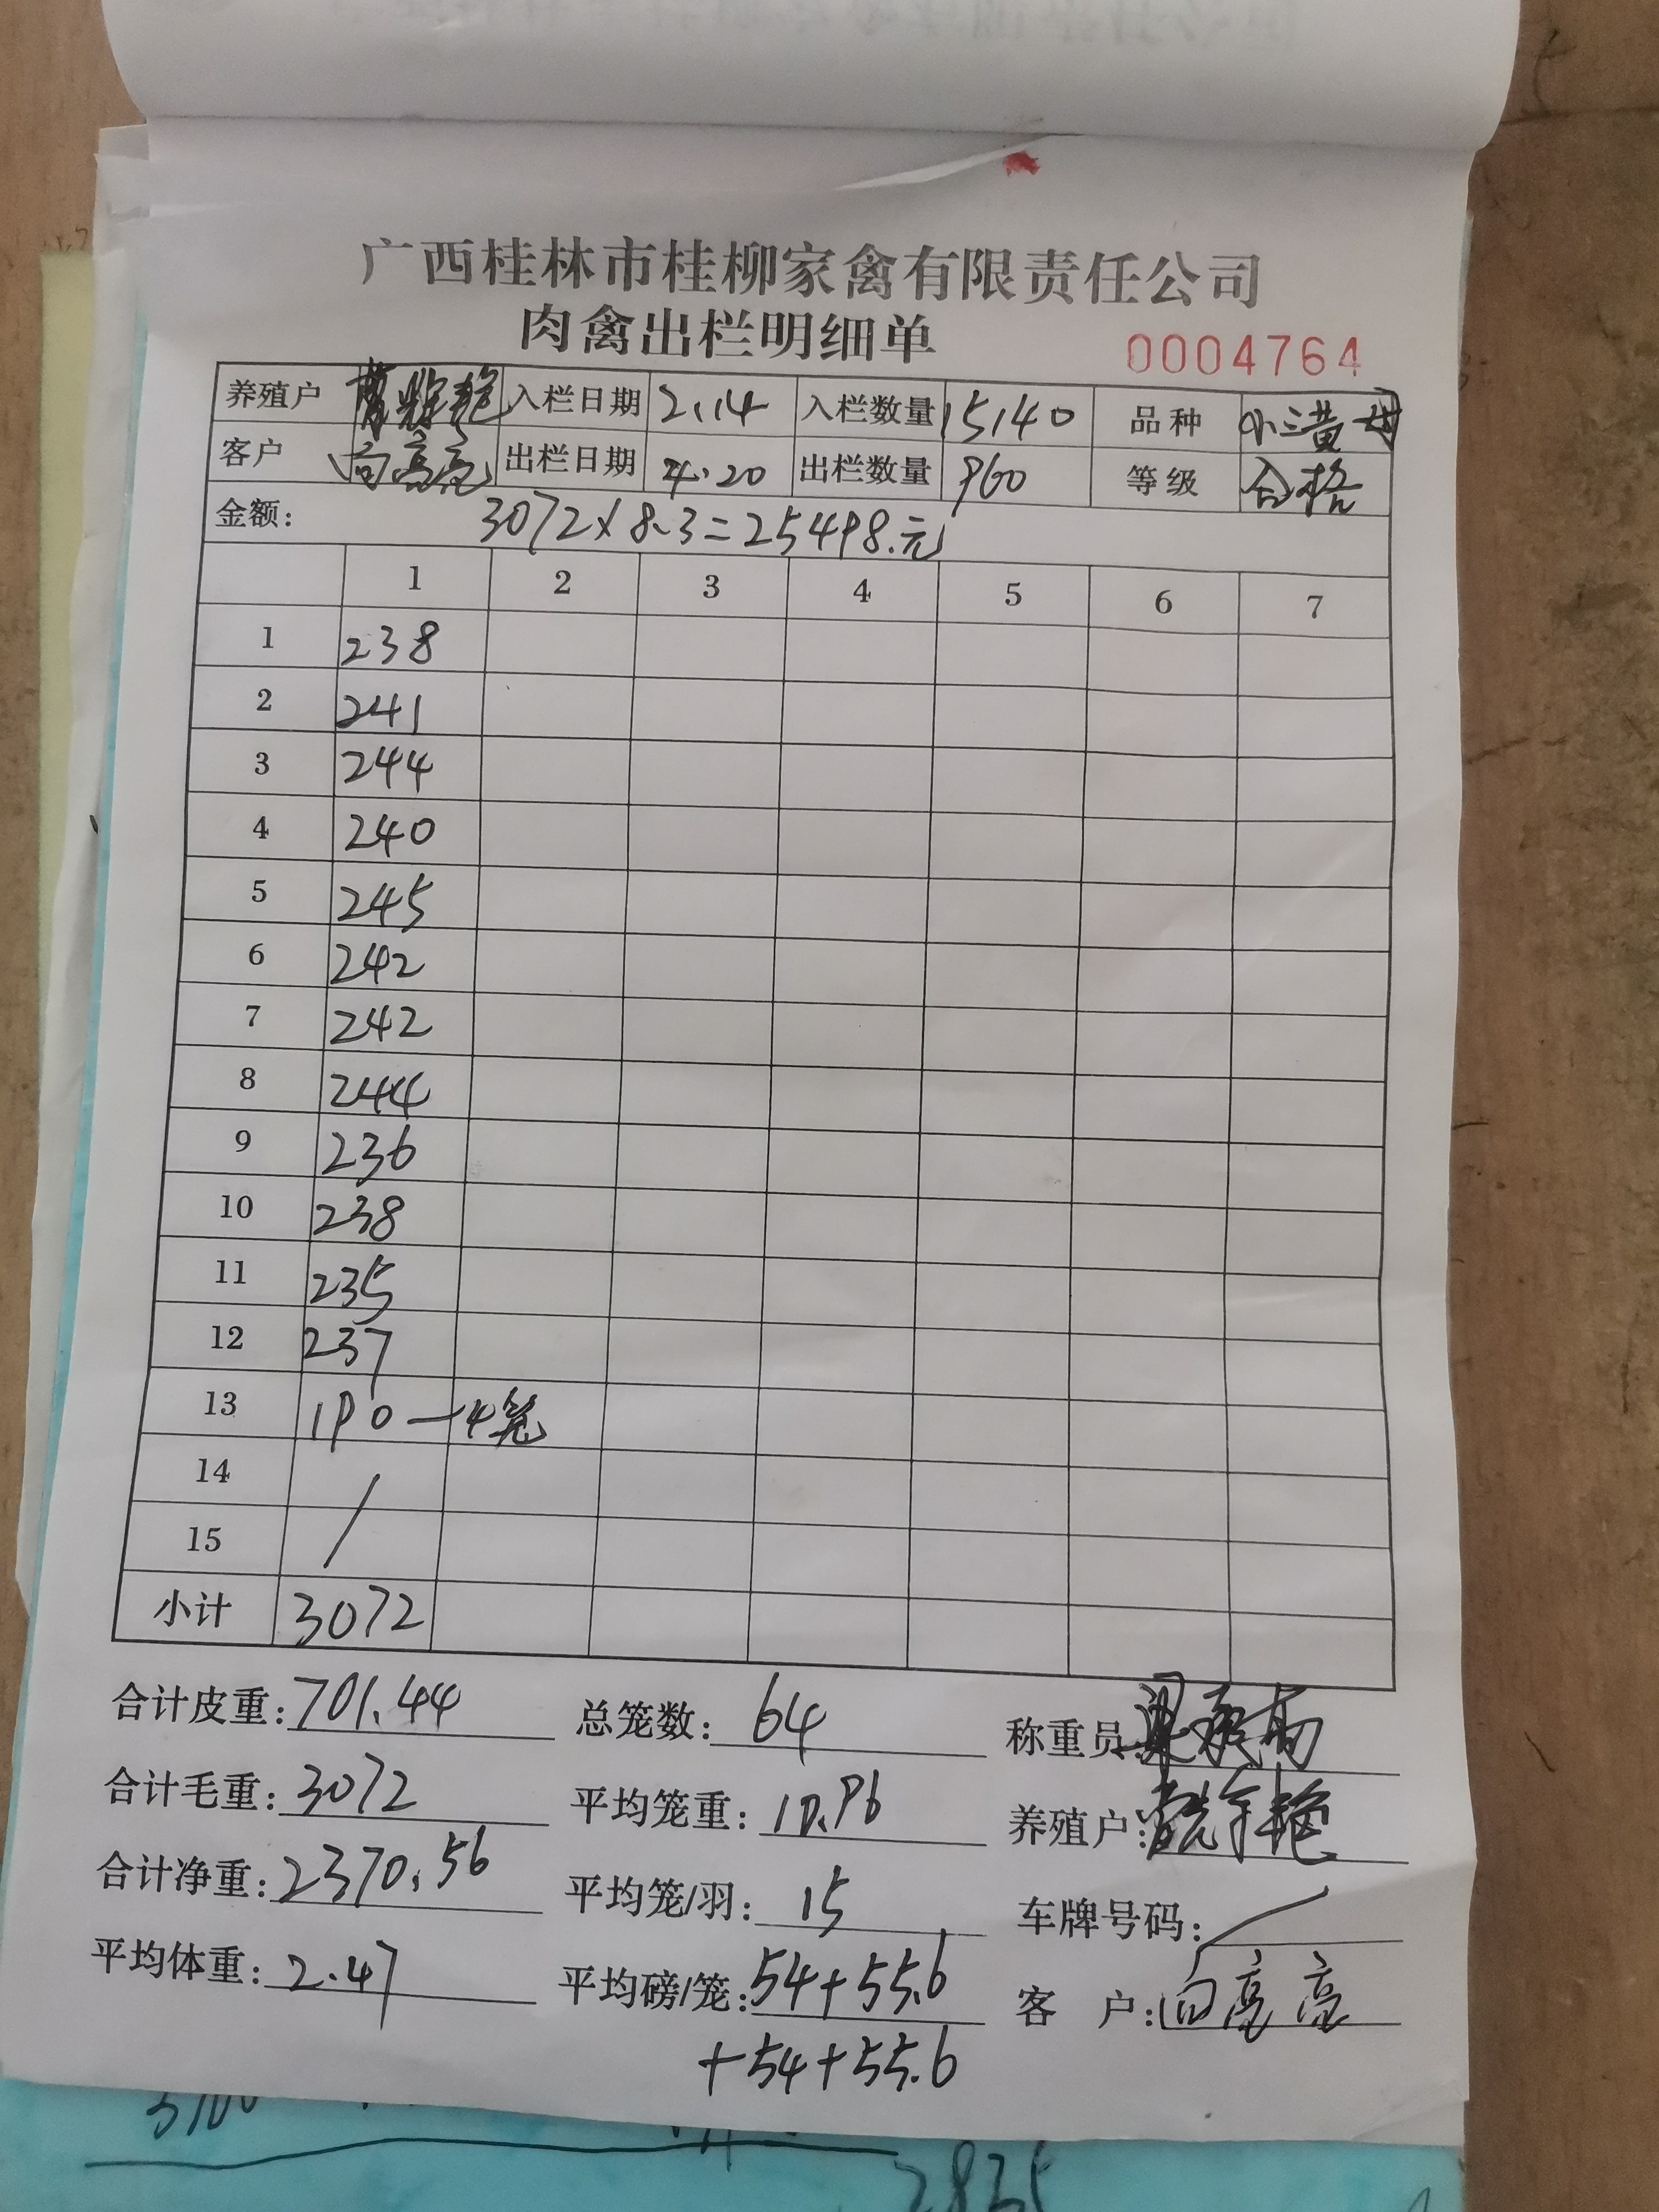 广西桂林市桂柳家禽有限责任公司
肉禽出栏明细单 0004764
养殖户 入栏日期 2.14 入栏数量 15140 品种 小三黄
客户 向亮亮 出栏日期 4.20 出栏数量 960 等级 合格
金额: 3072×8.3=25498.元
1 2 3 4 5 6 7
1 238
2 241
3 244
4 240
5 245
6 242
7 242
8 244
9 236
10 238
11 235
12 237
13 190—4笼
14 /
15
小计 3072
合计皮重: 701.44 总笼数: 64 称重员:
合计毛重: 3072 平均笼重: 10.96 养殖户:
合计净重: 2370.56 平均笼/羽: 15 车牌号码: /
平均体重: 2.47 平均磅/笼: 54+55.6 客 户: 向亮亮
+54+55.6
2835